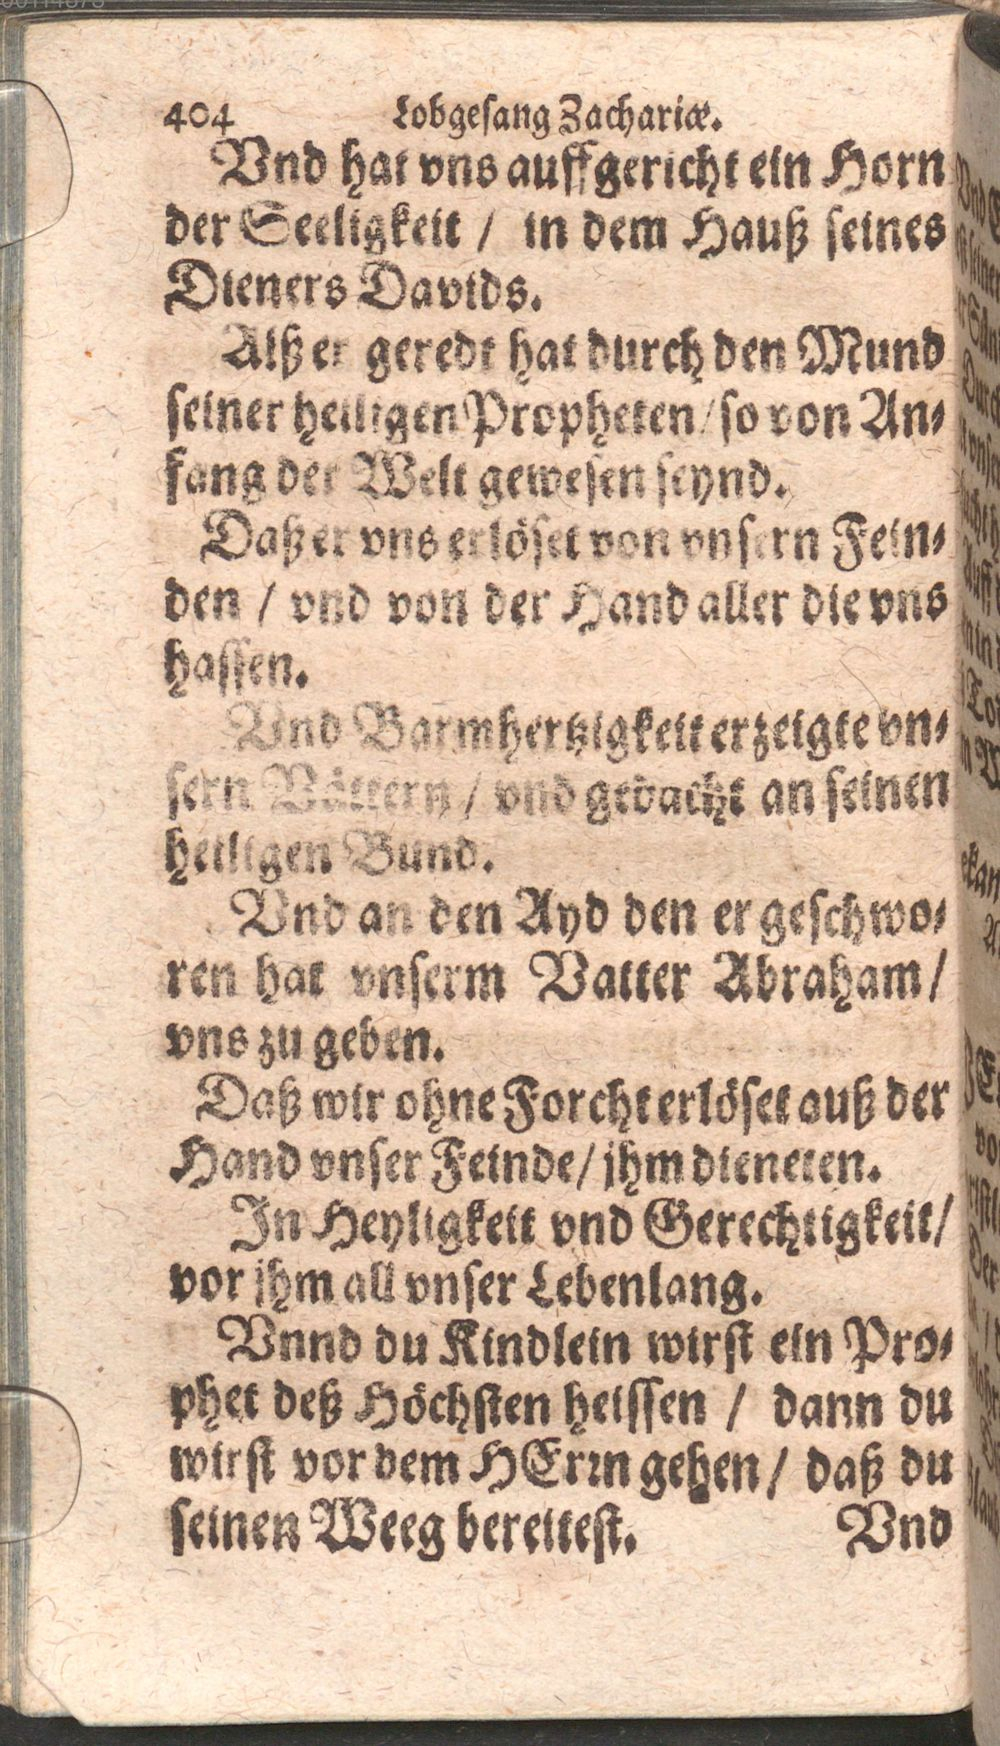 404 Lobgesang Zachariæ.
Vnd hat vns auffgericht ein Horn
der Seeligkeit / in dem Hauß seines
Dieners Davids.
Alß er geredt hat durch den Mund
seiner heiligen Propheten / so von An-
fang der Welt gewesen seynd.
Daß er vns erlöset von vnsern Fein-
den / vnd von der Hand aller die vns
hassen.
Vnd Barmhertzigkeit erzeigte vn-
sern Vättern / vnd gedacht an seinen
heiligen Bund.
Vnd an den Ayd den er geschwo-
ren hat vnserm Vatter Abraham /
vns zu geben.
Daß wir ohne Forcht erlöset auß der
Hand vnser Feinde / jhm dieneten.
In Heyligkeit vnd Gerechtigkeit /
vor jhm all vnser Lebenlang.
Vnnd du Kindlein wirst ein Pro-
phet deß Höchsten heissen / dann du
wirst vor dem HErrn gehen / daß du
seinen Weeg bereitest. Vnd